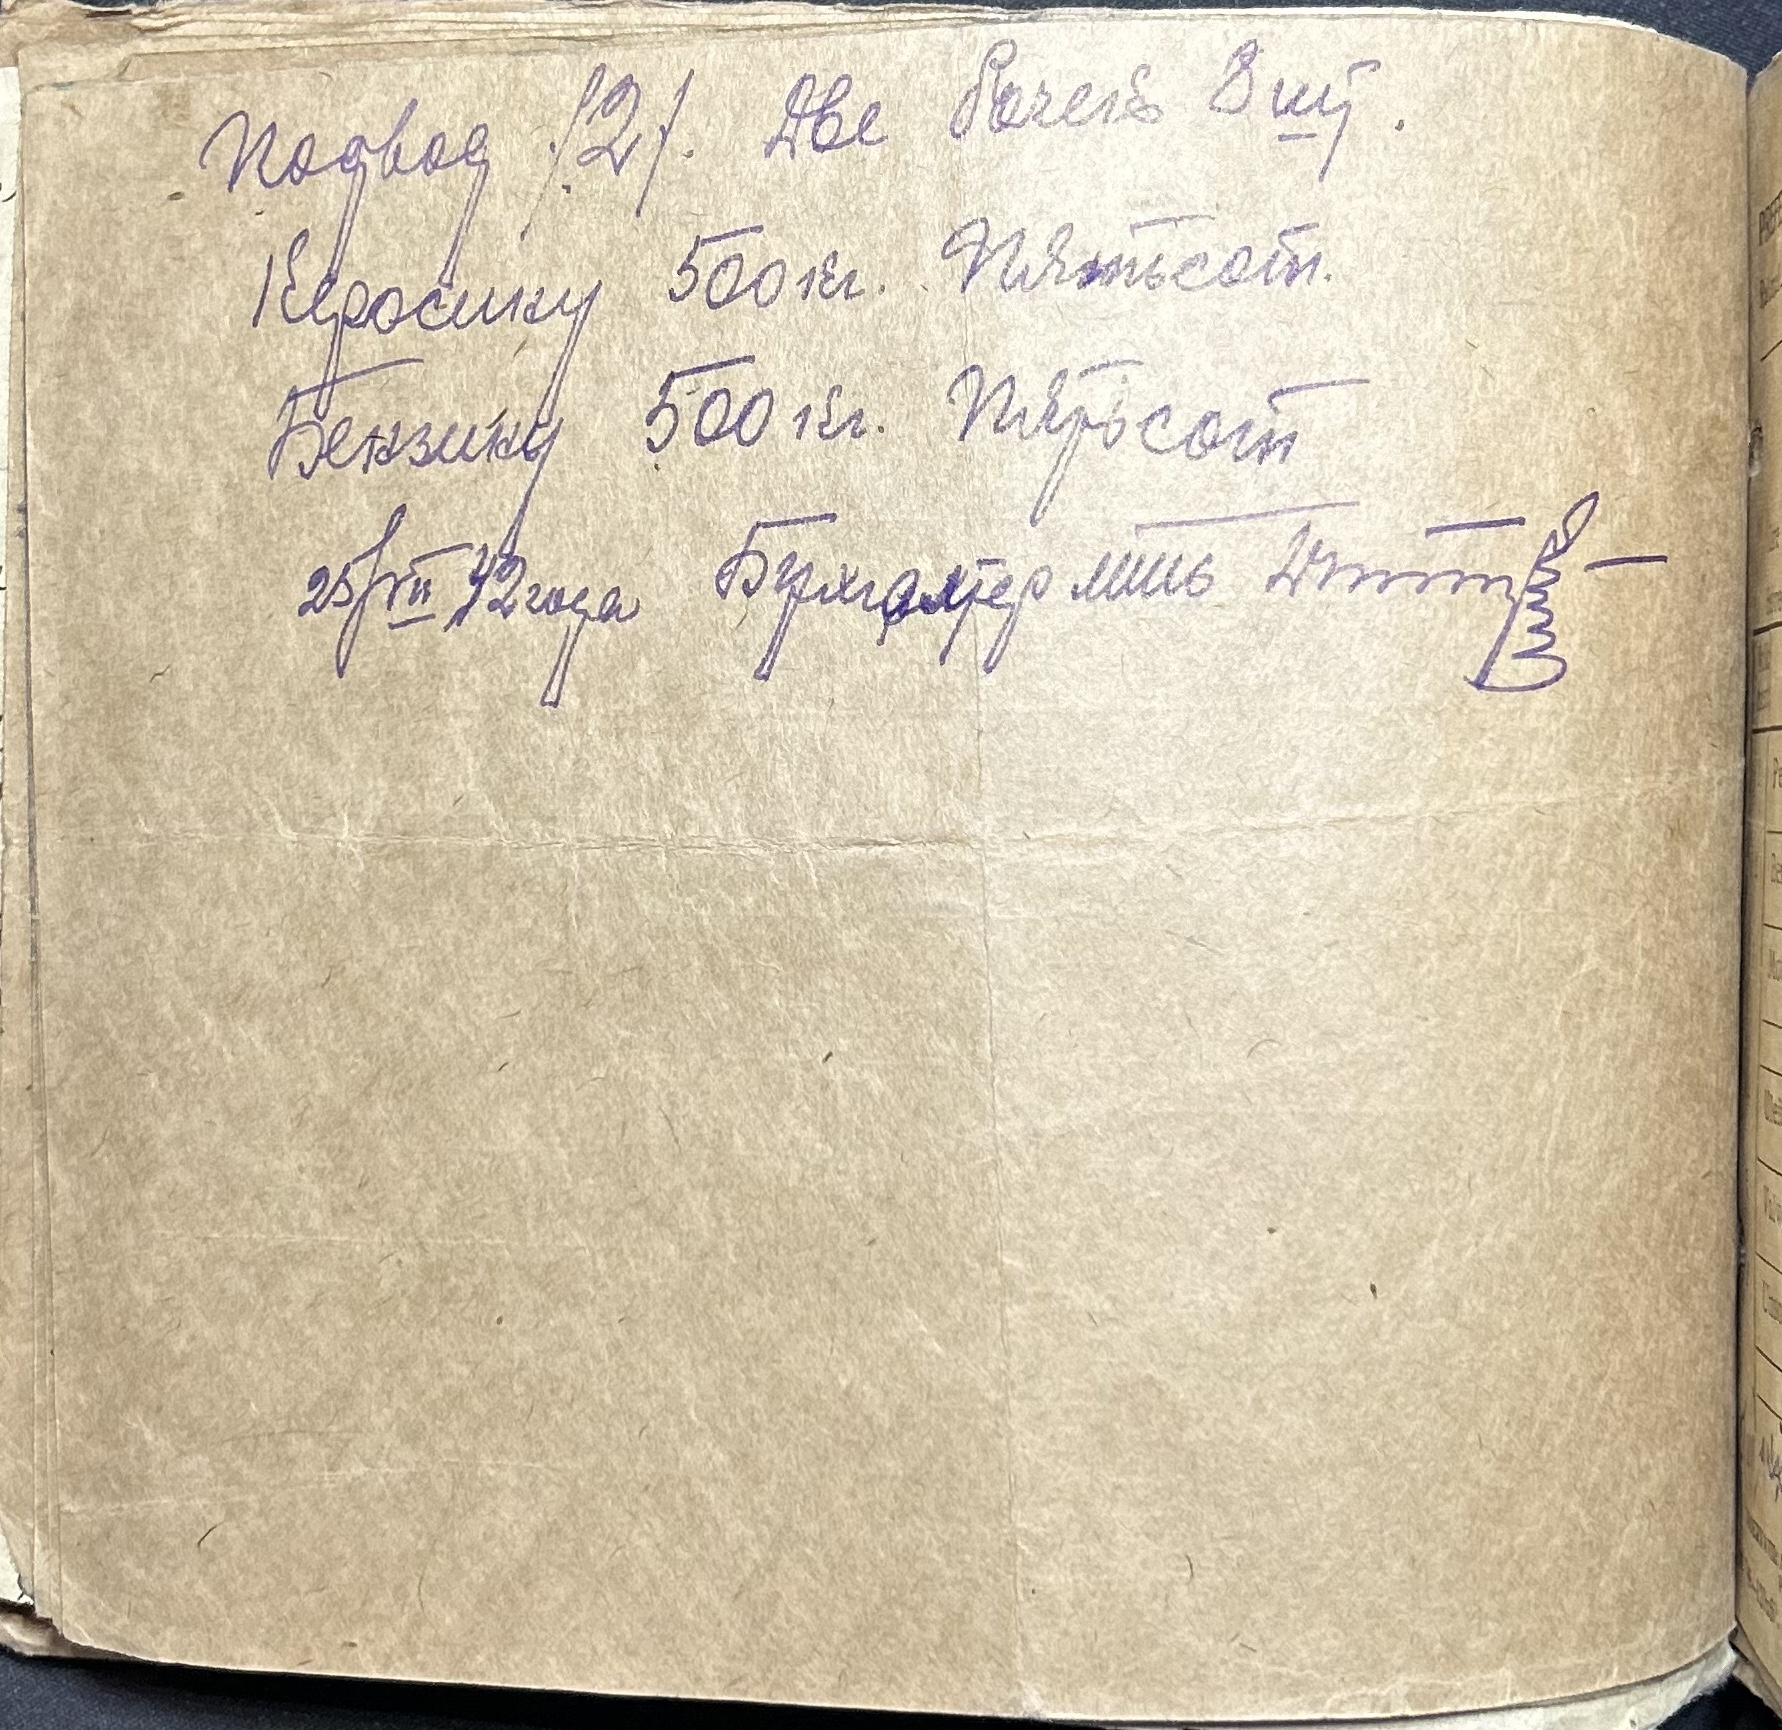 Подвод /2/. Две Бочек 3 шт.
Керосину 500 кг. Пятьсот.
Бензину 500 кг. Пятьсот
25/VII 42 года Бухгалтер